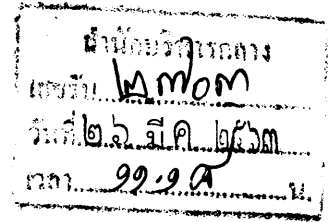 สำนักบริหารกลาง
เลขรับ ๒๗๐๓
วันที่ ๒๖ มี.ค. ๒๕๖๓
เวลา ๑๑.๑๕ น.